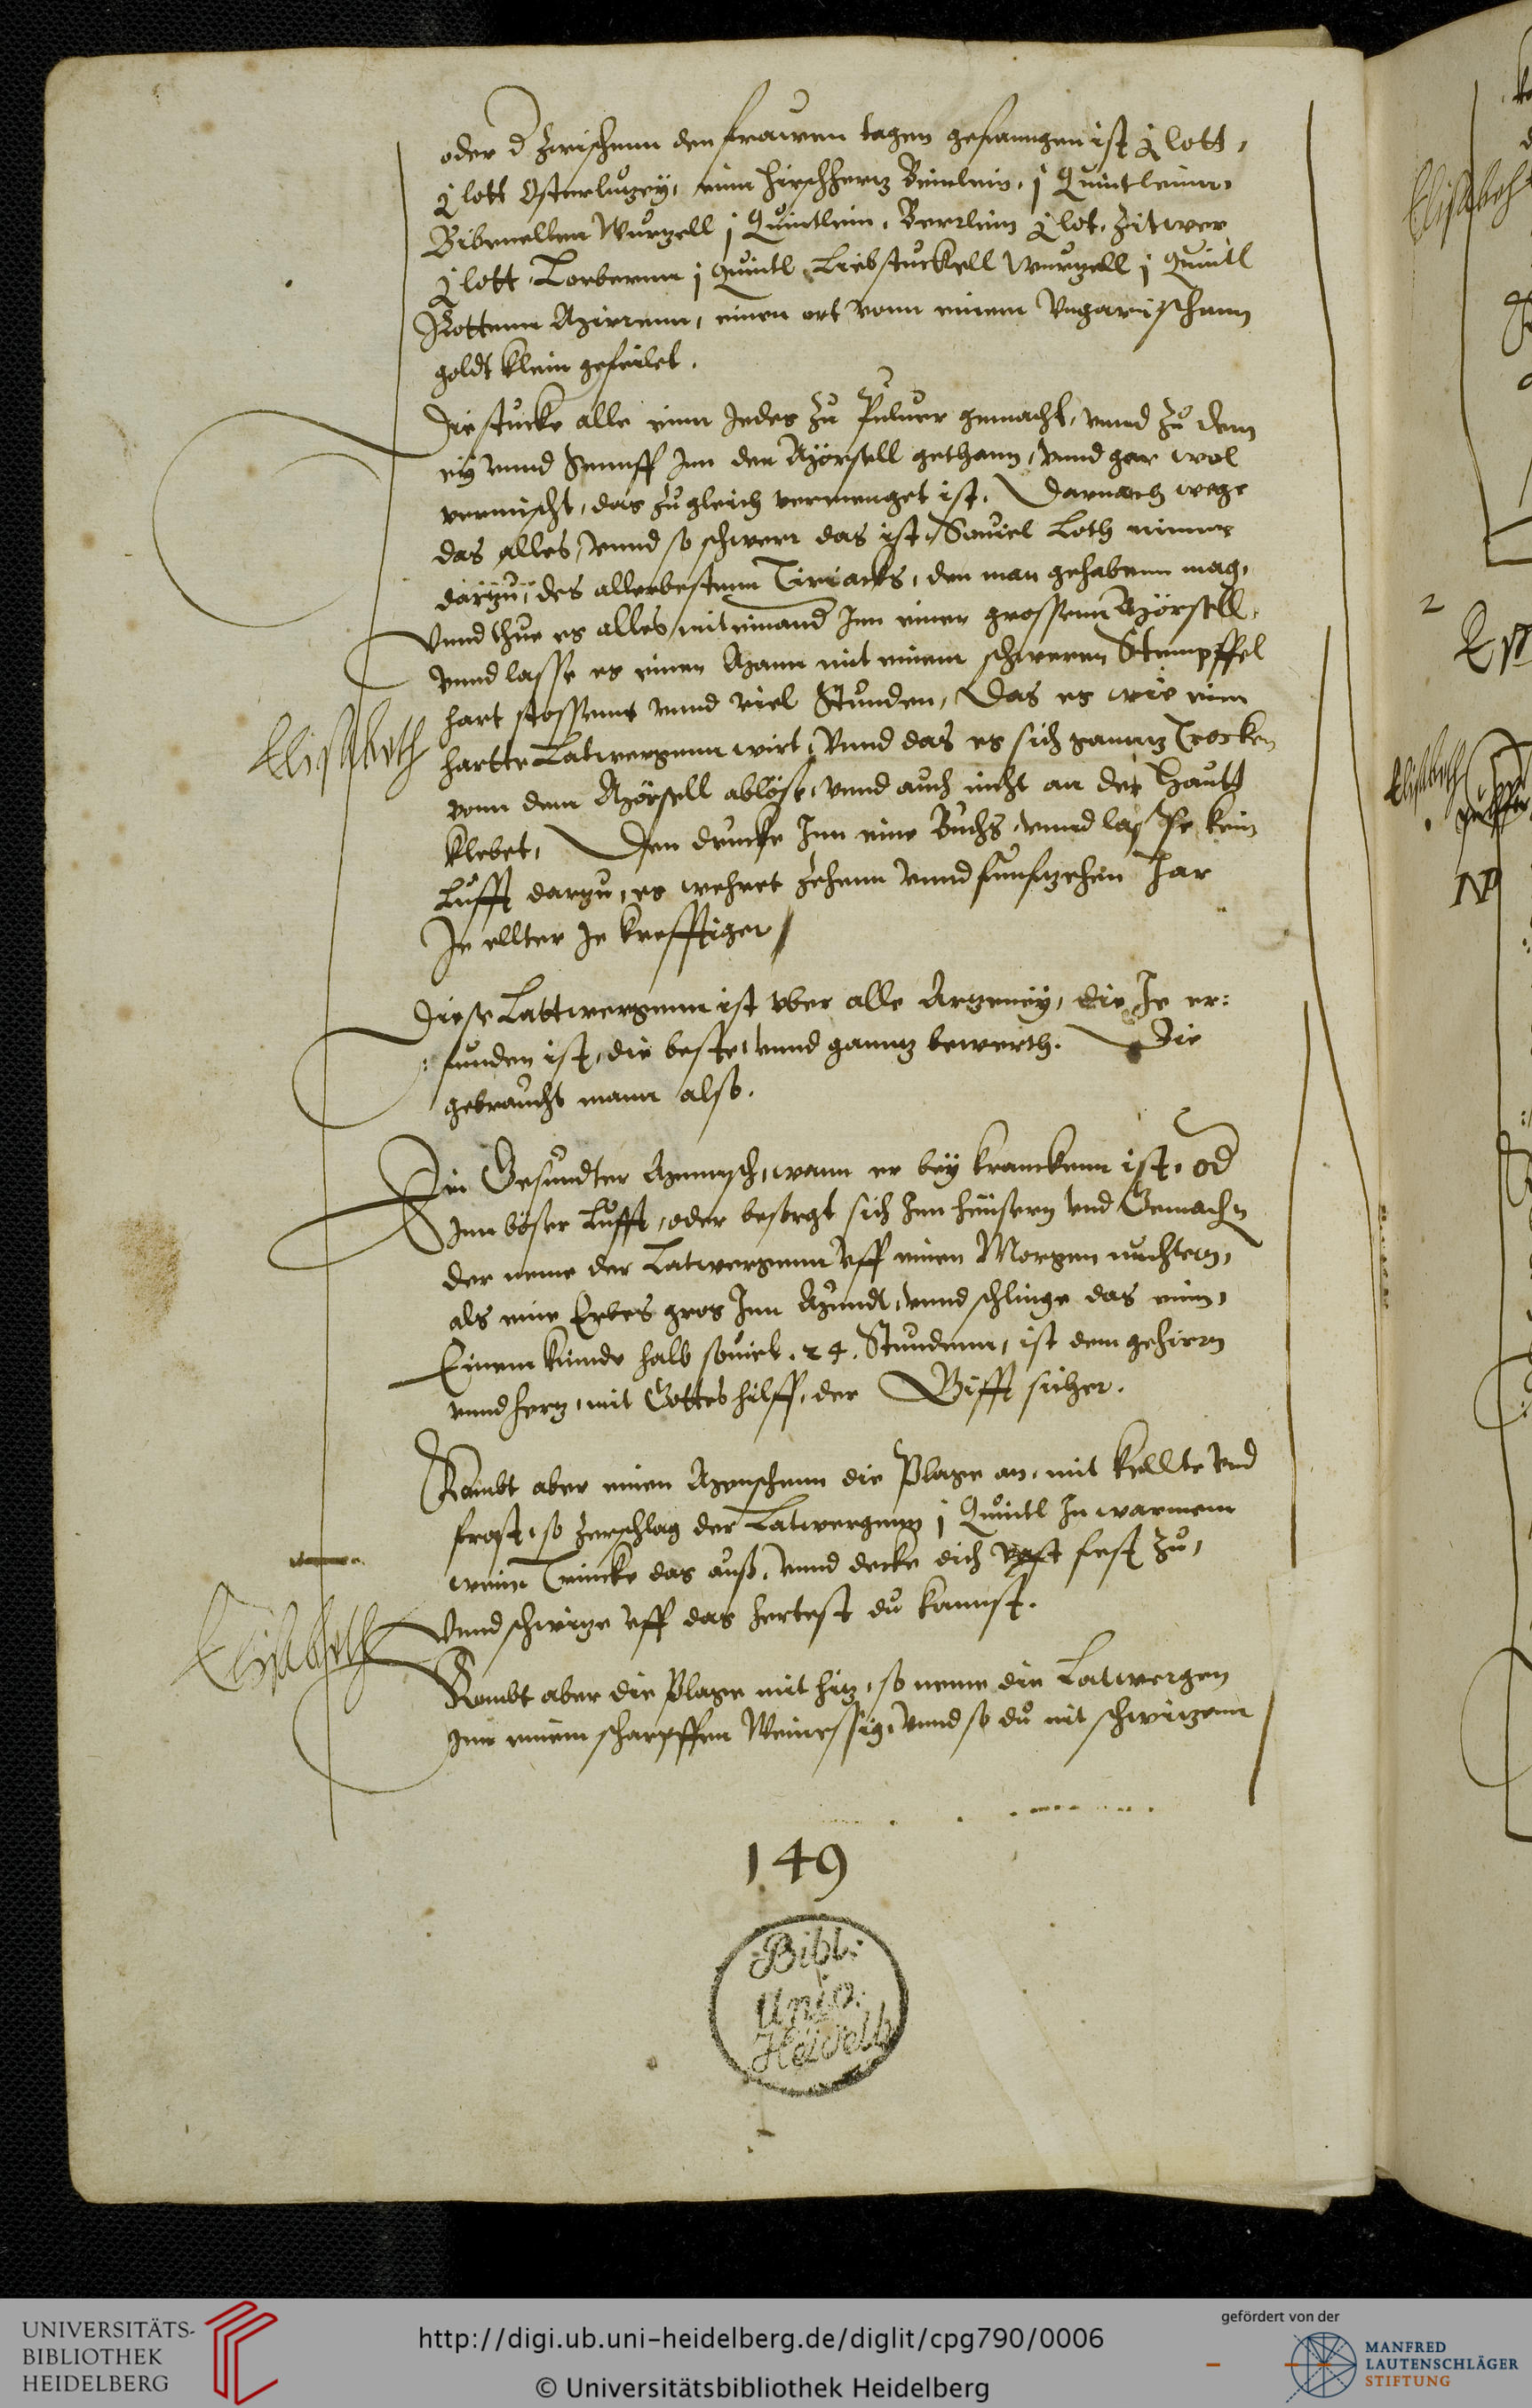 oder d zwischenn den frawen tagen gefanngen ist j lott,
j lott Osterlutzey, einn hirschhertz Beinlein, j Quintleinn,
Bibenellen Wurtzell j Quintlein, Berrlein j lot, Zitwer
j lott, Lorberenn j Quintl, Liebstuckell Wurtzell j Quintl
Rottenn Mirrenn, einen ort vonn einem Vngarischenn
goldt klein gefeilet.
Die stucke alle einn Jedes zu Puluer gemacht, vnnd zu dem
ey vnnd Sennff Jnn den Mörsell gethann, vnnd gar wol
vermischt, das zu gleich vermenget ist, Darnach wege
das alles, vnnd so schwer das ist, Souiel Loth nimme
darzu, des allerbestenn Tiriacks, den man gehabenn mag,
Vnnd thue es alles miteinand Jnn einen grossenn Mörsell,
vnnd lasse es einen Mann mit einem schweren Stempffel
hart stossenn vnnd viel Stunden, Das es wie einn
Elisabeth
hartte Latwergenn wirt, Vnnd das es sich ganntz Trocken
vonn dem Mörsell ablöse, vnnd auch nicht an der Hautt
klebet, Den drucke Jnn eine Buchs, vnnd lasse kein
Lufft darzu, es wehret zehenn vnnd funfzehen Jar
Je ellter Je krefftiger
Diese Lattwergenn ist vber alle Artzeney, die Je er:
:funden ist, die beste, vnnd ganntz bewerth. Die
gebraucht mann also.
Ein Gesundter Mennsch, wann er bey kranckenn ist, od
Jnn böser Lufft, oder besorgt sich Jnn heusern vnd Gemachn
der neme der Latwergenn vff einen Morgen nuchtern,
als eine Erbes gros Jnn Mundt, vnnd schlinge das einn,
Einem kinde halb souiel, 24. Stundenn, ist dem gehirn
vnnd hertz, mit Gottes hilff, der Gifft sicher.
Kombt aber einen Menschenn die Plage an, mit kellte vnd
frost, so zerschlag der Latwergenn j Quintl Jn warmem
wein Trincke das auß, vnnd decke dich vast fest zu,
Vnnd schwitze vff das hertest du kannst.
Elisabeth
Kombt aber die Plage mit hitz, so neme die Latwergen
Jnn einem scharpffen Weinessig, vnnd so du nit schwitzenn
149
Bibl:
Univ.
Heidelb
Elisabeth
2
Elisabeth
UNIVERSITÄTS-
BIBLIOTHEK
HEIDELBERG
http://digi.ub.uni-heidelberg.de/diglit/cpg790/0006
© Universitätsbibliothek Heidelberg
gefördert von der
MANFRED
LAUTENSCHLÄGER
STIFTUNG